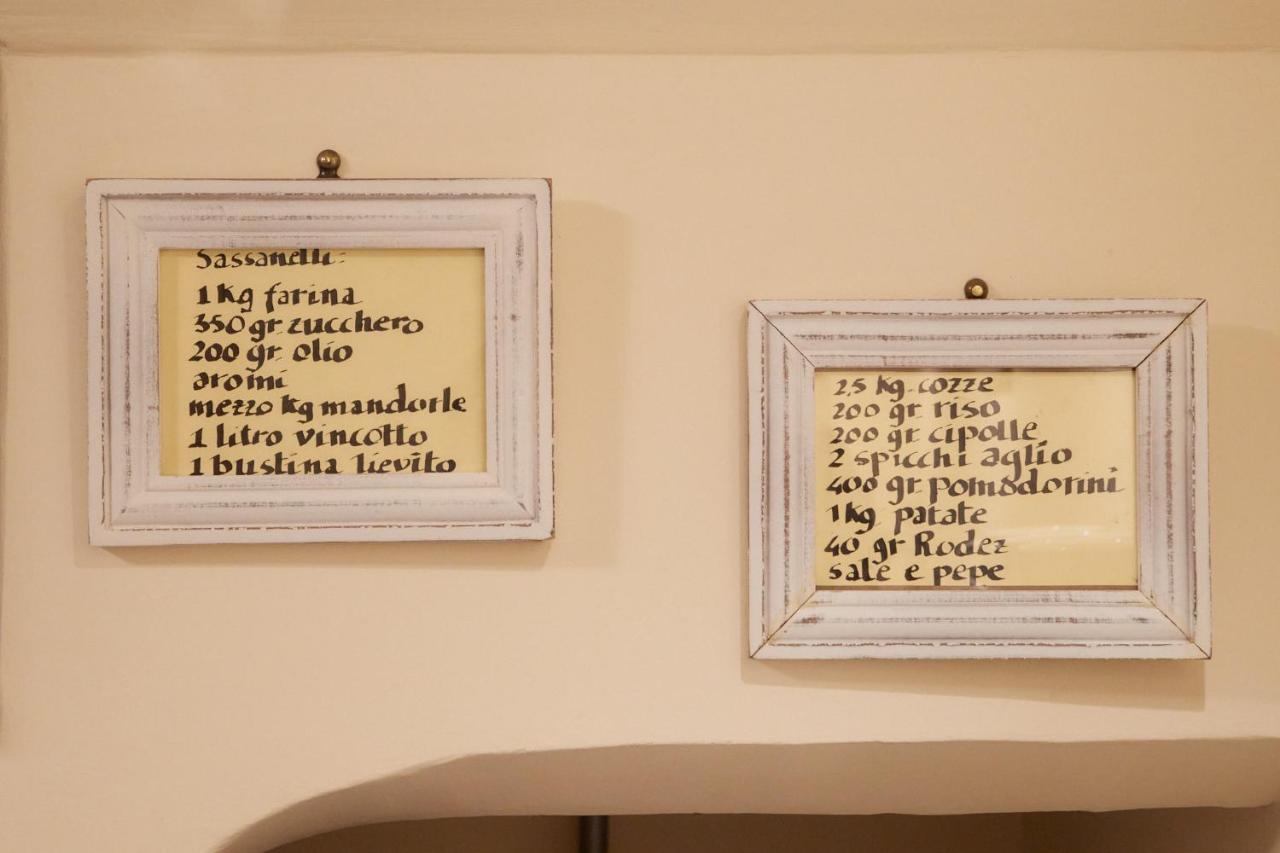 Sassanelli:
1 Kg farina
350 gr. zucchero
200 gr. olio
aromi
mezzo kg mandorle
1 litro vincotto
1 bustina lievito
2,5 kg. cozze
200 gr. riso
200 gr. cipolle
2 spicchi aglio
400 gr pomodorini
1 kg. patate
40 gr Rodez
sale e pepe